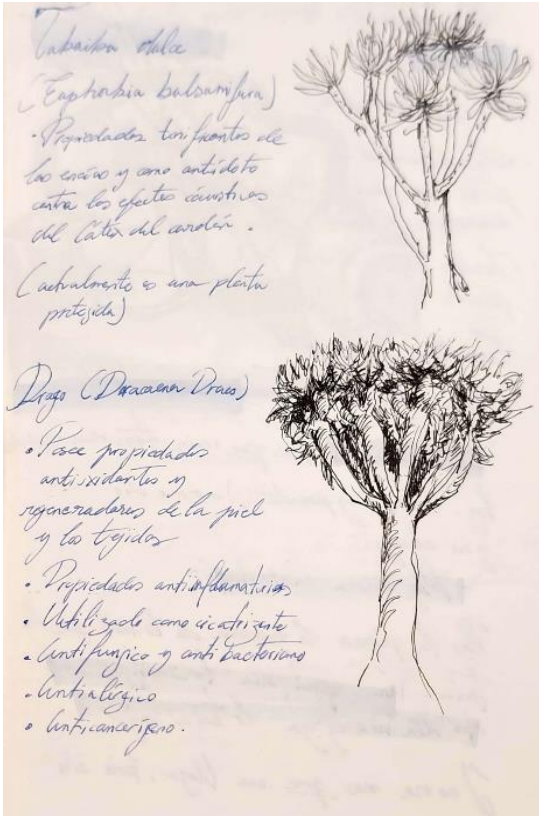 Tabaiba dulce
(Euphorbia balsamifera)
· Propiedades tonificantes de
las encías y como antídoto
contra los efectos cáusticos
del látex del cardón.
(actualmente es una planta
protegida)
Drago (Dracaena Draco)
• Posee propiedades
antioxidantes y
regeneradoras de la piel
y los tejidos
• Propiedades antiinflamatorias
• Utilizado como cicatrizante
• Antifungico y antibacteriano
• Antialérgico
• Anticancerígeno.